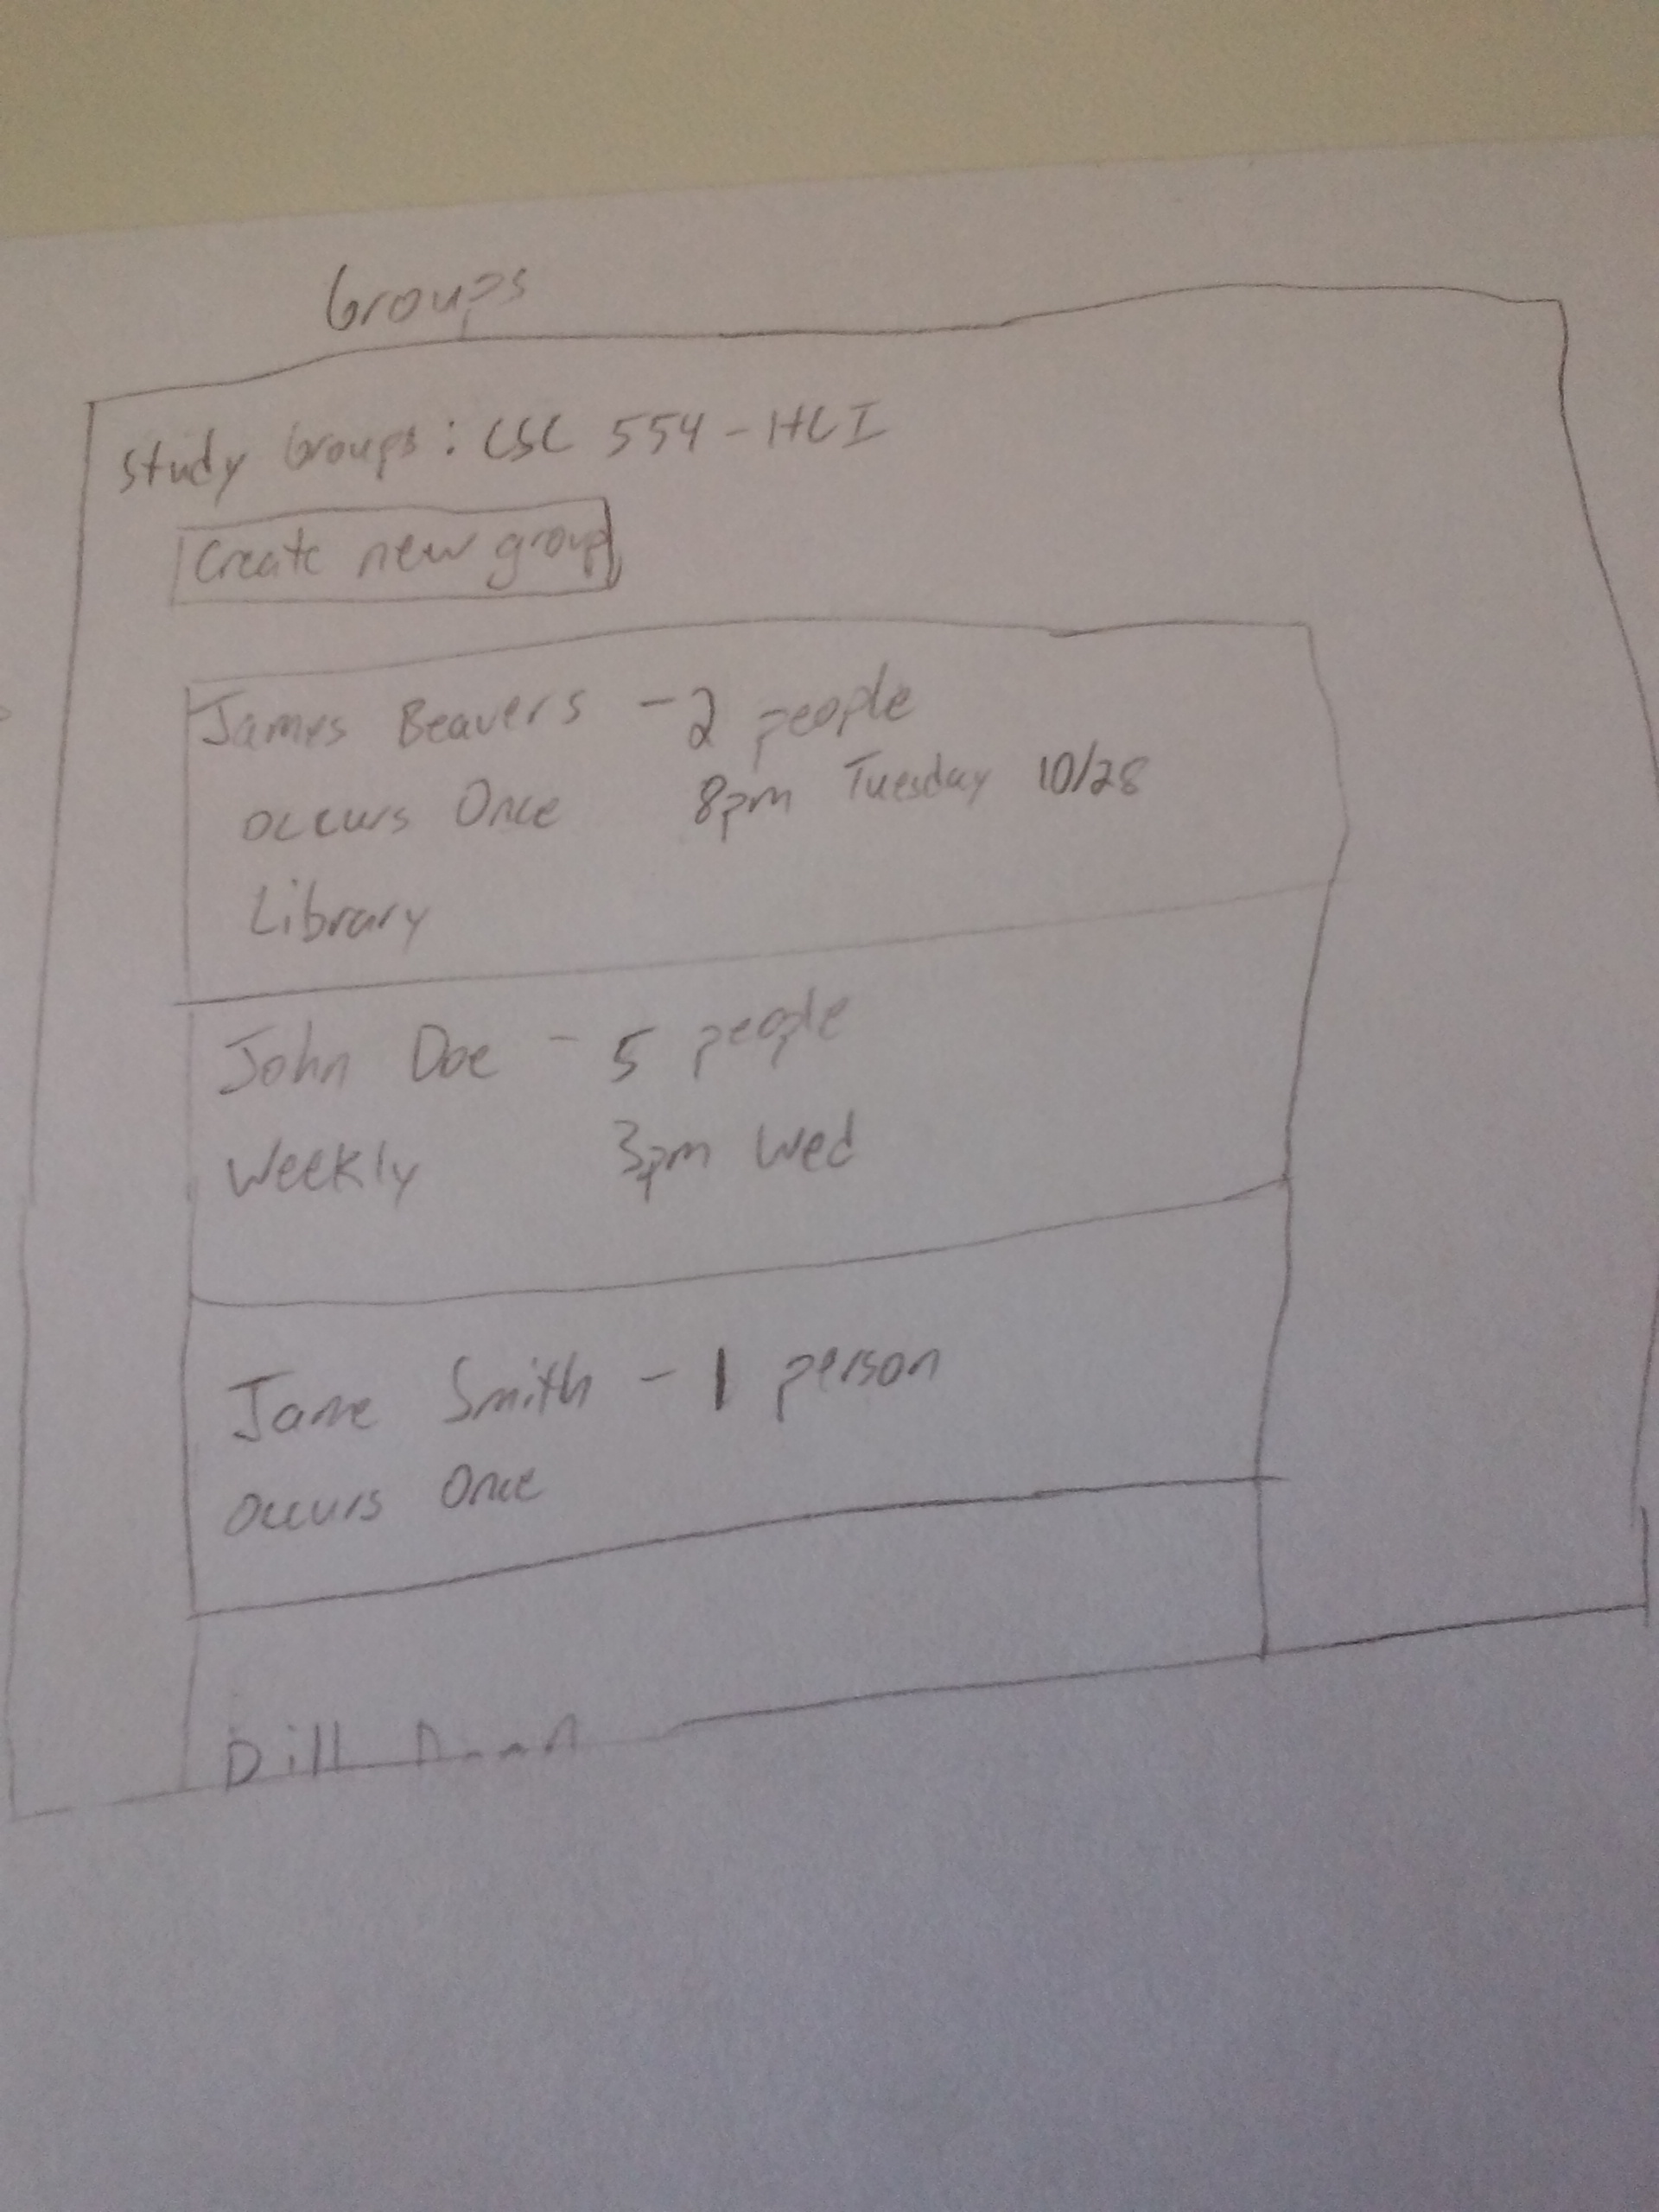 Groups
Study Groups: CSC 554 - HCI
Create new group
James Beavers - 2 people
Occurs Once 8pm Tuesday 10/28
Library
John Doe - 5 people
Weekly 3pm Wed
Jane Smith - 1 person
Occurs Once